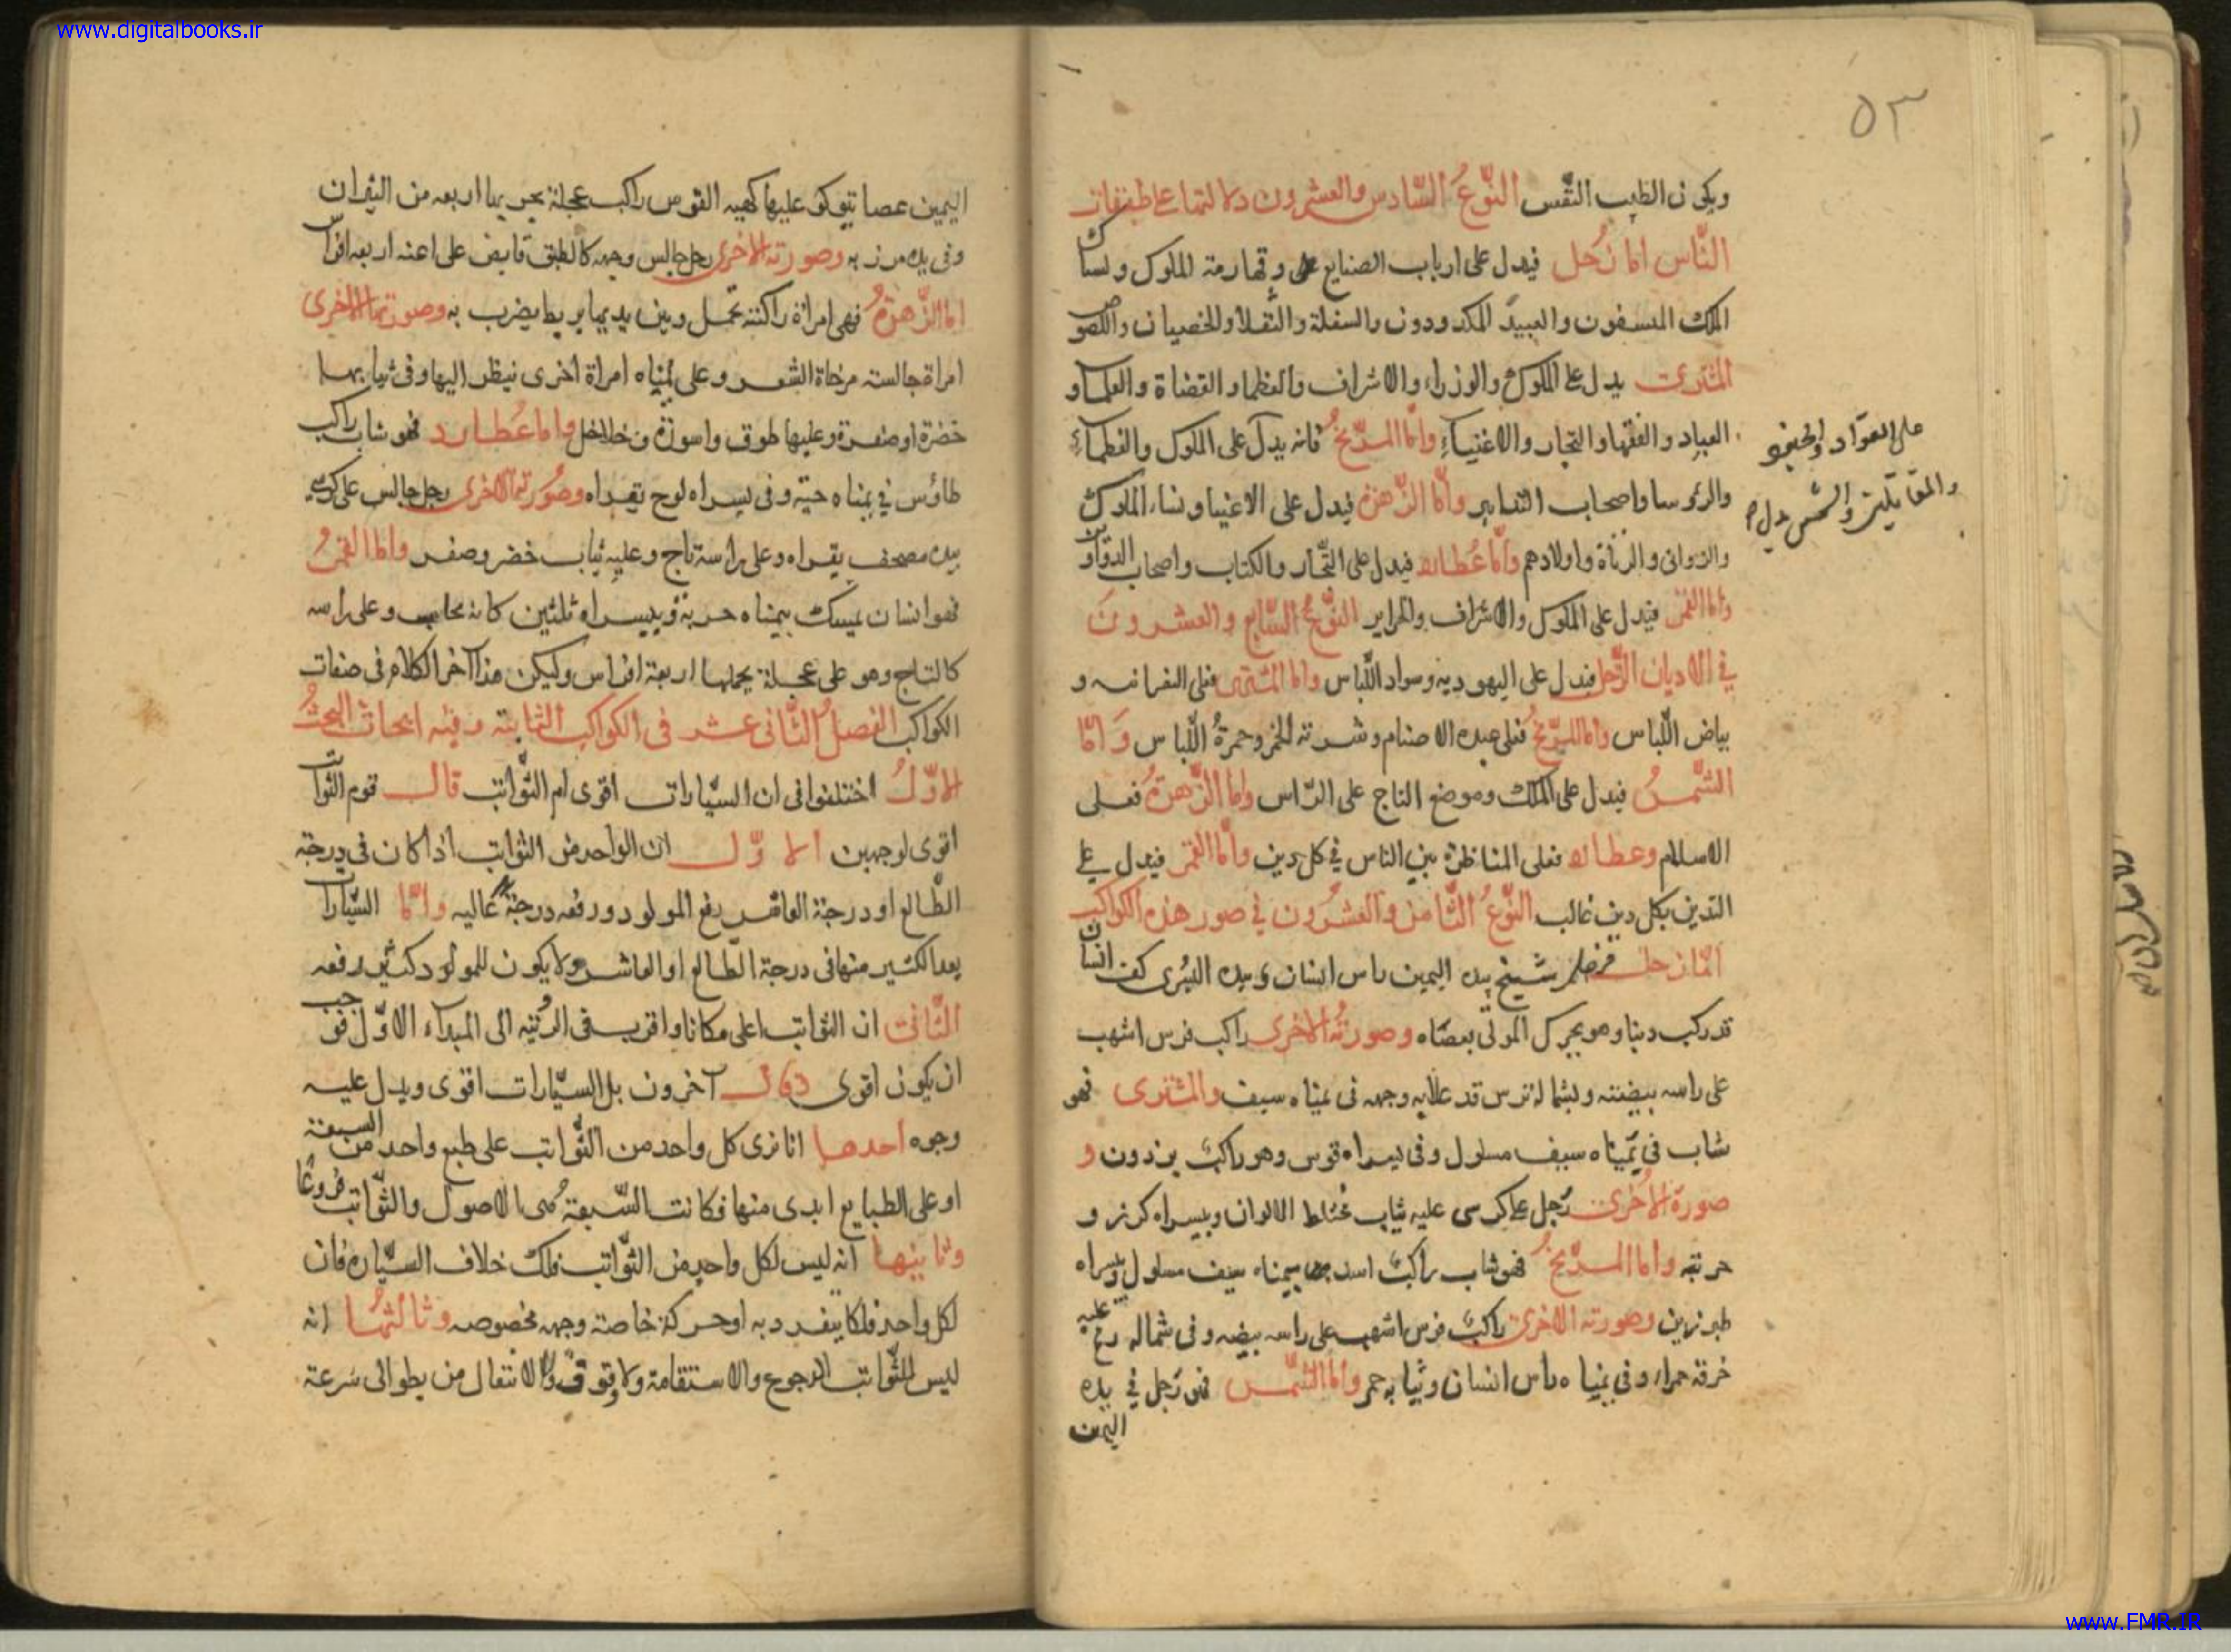 www.digitalbooks.ir
٥٣
ويكون الطيب النفس النّوعُ السّادس والعشرون دلالتها على طبقات
النّاس اما زحل فيدل على ارباب الصنايع وقهارمة الملوك ونساك
الملك والعبيد المكدودون والسفلة والثقلا والخصيان واللصوص
المشترى يدل على الملوك والوزراء والاشراف والعظما والقضاة والعلما و
العباد والفقها والتجار والاغنياءِ وامّا المرّيخُ فانه يدل على الملوك والعظماء
على القوّاد والمقاتلين والشمس يدل
والرؤسا واصحاب التدابير وأمّا الزّهرة فيدل على الاغنيا ونساء الملوك
والزوانى والزناة واولادهم وامّا عُطارد فيدل على التّجار والكتاب واصحاب الدواوين
واما القمر فيدل على الملوك والاشراف والحراير النّوعُ السّابع والعشرونَ
في الاديان الزّحل فيدل على اليهودية وسواد اللّباس واما المشترى فعلى النصرانيه و
بياض اللّباس واما المرّيخُ فعلى عبده الاصنام وشربة الخمر وحمرةُ اللّباس وَ امّا
الشّمسُ فيدل على الملك وموضع التاج على الرّاس واما الزّهرةُ فعلى
الاسلام وعطارد فعلى المناظرة بين الناس في كل دين وأمّا القمر فيدل على
التدين بكل دين غالب النّوعُ الثّامن والعشرُون في صور هذه الكواكب
امّا زحل شيخ بيده اليمين راس انسان وبيده اليُسرى كف انسان
قد ركب ذيبا وهو يحرك وصورتهُ الاخرى راكب فرس اشهب
على راسه بيضته وبشماله ترس قد علا به وجهه فى يمناه سيف والمشترى فهو
شاب في يمناه سيف مسلول وفى يسراه قوس وهو راكب برذون و
صورة الاخرى رُجل على كرسى عليه ثياب مختلط الالوان وبيسراه كرنز و
حربته واما المرّيخُ فهو شاب راكب اسد بيمناه سيف مسلول وبيسراه
طبرزين وصورته الاخرى راكب فرس اشهب على راسه بيضه وفى شماله رمح عليه
خرقة حمراء وفى يمناه راس انسان وثيابه حمر وأما الشّمس فهى رَجل في يده
اليمين
اليمين عصا يتوكو عليها كهيه القوس راكب عجلة يجر بها اربعه من الثيران
وفى يده مرزبه وصورته الاخرى رجل جالس وجهه كالطبق قابض على اعنه اربعه افراس
اما الزّهرةُ فهى امراة راكبته جمل وبين يديها بربط يضرب به وصورتها الاخرى
امراة جالسته مرخاة الشعر وعلى يمناه امراة اخرى ينظر اليها وفى ثيابها
خضرة او صفرة وعليها طوق واسورة وخلاخل واما عُطارد فهو شاب راكب
طاؤس في يمناه حيّة وفى يسراه لوح يقراه وصُورتها الاخرى رجل جالس على كرسي
بيده مصحف يقراه وعلى راسه تاج وعليه ثياب خضر وصفر واما القمرُ
فهو انسان يمسك بيمناه حربة وبيسراه ثلثين كانه يحاسب وعلى راسه
كالتاج وهو على عجلة يحملها اربعة افراس وليكن هذا آخر الكلام فى صفات
الكواكب الفصلُ الثّانى عشر فى الكواكب الثابته وفيه ابحاث البحثُ
الاوّلُ اختلفوا فى ان السيّارات اقوى ام الثّوابت قال قوم الثوابت
اقوى لوجهين الاوّل ان الواحد من الثوابت اذا كان فى درجة
الطّالع او درجة العاشر رفع المولود ورفعه درجةً عاليه وامّا السيّارات
بعد الكثير منها فى درجة الطّالع او العاشر ولا يكون للمولود كثير رفعه
الثّانى ان الثوابت اعلى مكانا واقرب فى الرّتبه الى المبداء الاوّل فوجب
ان يكون اقوى وقال آخرون بل السيّارات اقوى ويدل عليه
وجوه احدها انا نرى كل واحد من الثّوابت على طبع واحد من السبعة
او على الطبايع ابدى منها فكانت السّبعةُ هى الاصول والثّوابت فروعًا
وثانيها انه ليس لكل واحد من الثّوابت فلك خلاف السيّاره فان
لكل واحد فلكا ينفرد به او حركة خاصته وجهه مخصوصه وثالثها انه
ليس للثّوابت الرجوع والاستقامة ولا وقوف ولا الانتقال من بطو الى سرعة
www.FMR.IR